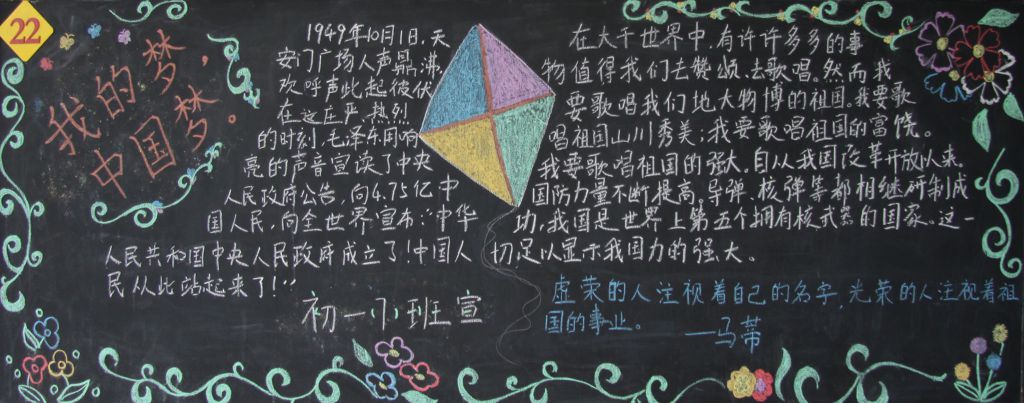 22
我的梦，
中国梦。
1949年10月1日，天
安门广场人声鼎沸
欢呼声此起彼伏
在这庄严、热烈
的时刻，毛泽东用响
亮的声音宣读了中央
人民政府公告，向4.75亿中
国人民，向全世界宣布：“中华
人民共和国中央人民政府成立了！中国人
民从此站起来了！”
初一(1)班宣
在大千世界中，有许许多多的事
物值得我们去赞颂、去歌唱。然而我
要歌唱我们地大物博的祖国。我要歌
唱祖国山川秀美；我要歌唱祖国的富饶。
我要歌唱祖国的强大。自从我国改革开放以来，
国防力量不断提高。导弹、核弹等都相继研制成
功，我国是世界上第五个拥有核武器的国家。这一
切，足以显示我国力的强大。
虚荣的人注视着自己的名字，光荣的人注视着祖
国的事业。
——马蒂